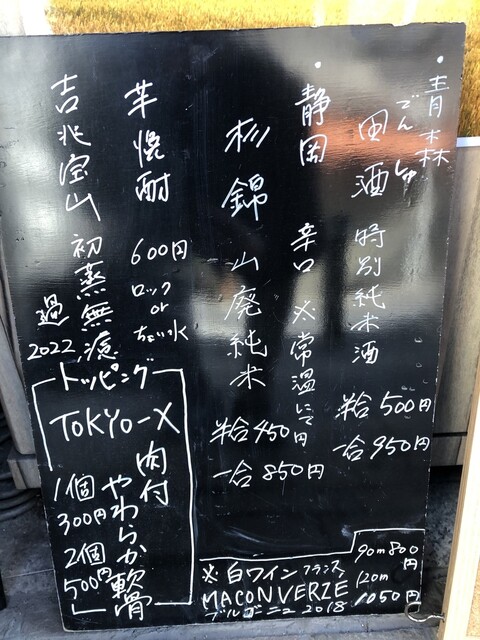 ・青森
田酒
でんしゅ
特別純米酒
半合500円
一合950円
・静岡
辛口 ※常温にて
杉錦
山廃純米
半合450円
一合850円
芋焼酎
600円
ロック
or
ちょい水
吉兆宝山
初蒸無濾過
2022
トッピング
TOKYO-X
肉付
やわらか軟骨
1個
300円
2個
500円
※白ワイン フランス
MACON VERZE
ブルゴーニュ 2018
90m 800円
120m
1050円